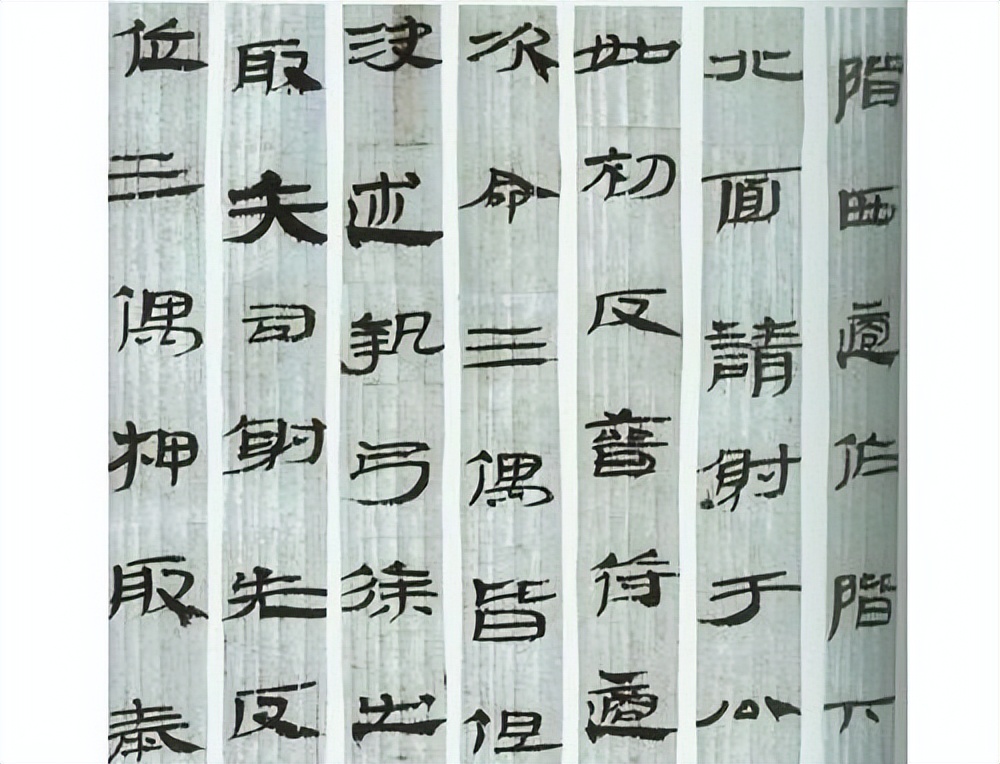 階西適作階下
北面請射于公
如初反晉適
次命三偶皆但
決述執弓徐出
取矢司射先反
位三偶柙取